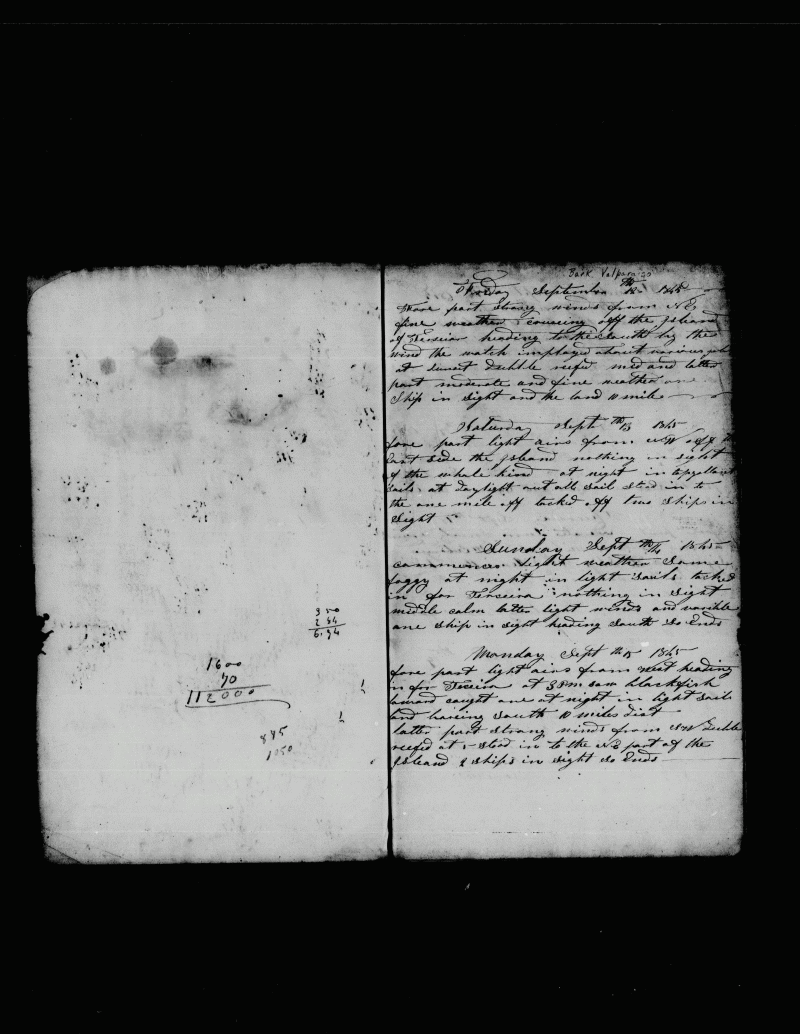 350
2 54
6.94
1600
70
112000
845
1050
Bark Valparaiso
Friday September 12th 1845
Fore part Strong winds from NE
fine weather Crusing off the Island
of Terseiar heading to the South by the
wind the watch imployed about various jobs
at sunset Dubble reefd mid and latter
part moderate and fine weather one
Ship in sight and the land 10 mile
Saturday Sept th13 1845
fore part light airs from NW off
East side the Island nothing in sight
of the whale kind at night in topgallant
sails at daylight out all sail Stod in to
the one mile off tacked off two Ships in
sight
Sunday Sept th14 1845
commences light weather Some
foggy at night in light sails tacked
in for Terceira nothing in sight
middle calm latter light winds and varible
one Ship in sight heading South So Ends
Monday Sept th15 1845
fore part light airs from west heading
in for Terceira at 3 PM saw blackfish
lowerd caught one at night in light sail
land baring South 10 miles dist
latter part strong winds from NW Dubble
reefed at 5 Stod in to the NE part of the
Island 2 Ships in sight So Ends